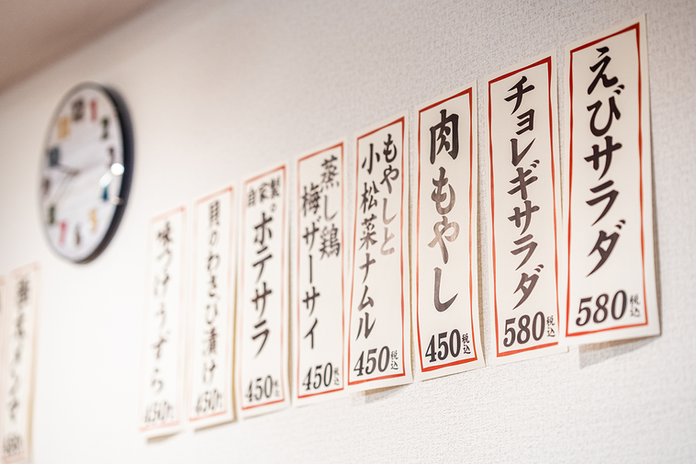 えびサラダ
580税込
チョレギサラダ
580税込
肉もやし
450税込
もやしと
小松菜ナムル
450税込
蒸し鶏
梅ザーサイ
450税込
自家製の
ポテサラ
450税込
貝のわさび漬け
450税込
味つけうずら
450税込